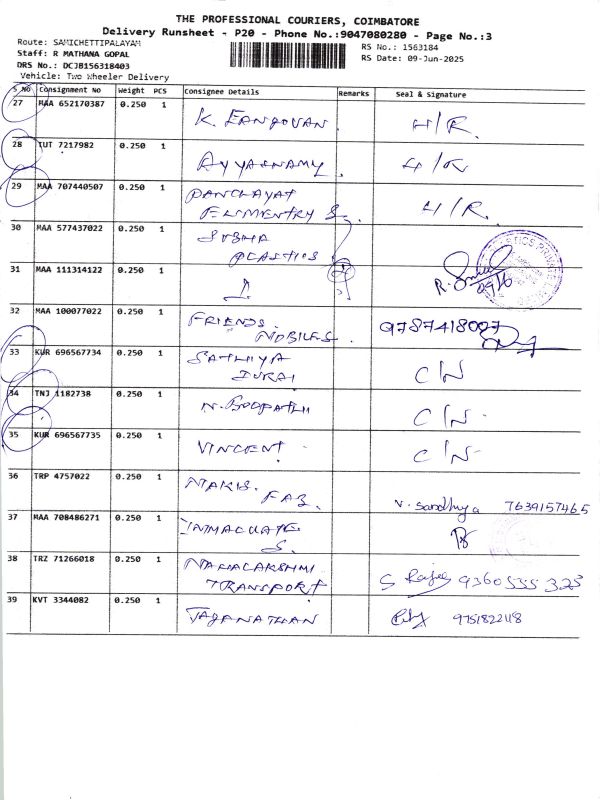 THE PROFESSIONAL COURIERS, COIMBATORE
Delivery Runsheet - P20 - Phone No.:9047080280 - Page No.:3
Route: SAMICHETTIPALAYAM
Staff: R MATHANA GOPAL
DRS No.: DCJB156318403
Vehicle: Two Wheeler Delivery
RS No.: 1563184
RS Date: 09-Jun-2025
S No Consignment No Weight PCS Consignee Details Remarks Seal & Signature
27 MAA 652170387 0.250 1 K. EANGOVAN. H/R.
28 TUT 7217982 0.250 1 AYYASNAMY. H/R
29 MAA 707440507 0.250 1 PANCHAYAT H/R.
ELIMENTRY S.
30 MAA 577437022 0.250 1 SUBHA
PLASTICS
31 MAA 111314122 0.250 1 R.
09/6
32 MAA 100077022 0.250 1 FRIENDS. 9787418007
MOBILES.
33 KUR 696567734 0.250 1 SATHIYA C/N
DURAI
34 TNJ 1182738 0.250 1 N. BOOPATHI C/N.
35 KUR 696567735 0.250 1 VINCENT. C/N-
36 TRP 4757022 0.250 1 NAKIS. V. Sandhya 7639157465
FAB.
37 MAA 708486271 0.250 1 INMACULATE
S.
38 TRZ 71266018 0.250 1 MAHALAKSHMI S Rajee 9360555323
TRANSPORT
39 KVT 3344082 0.250 1 JAGANATHAN 9751822118